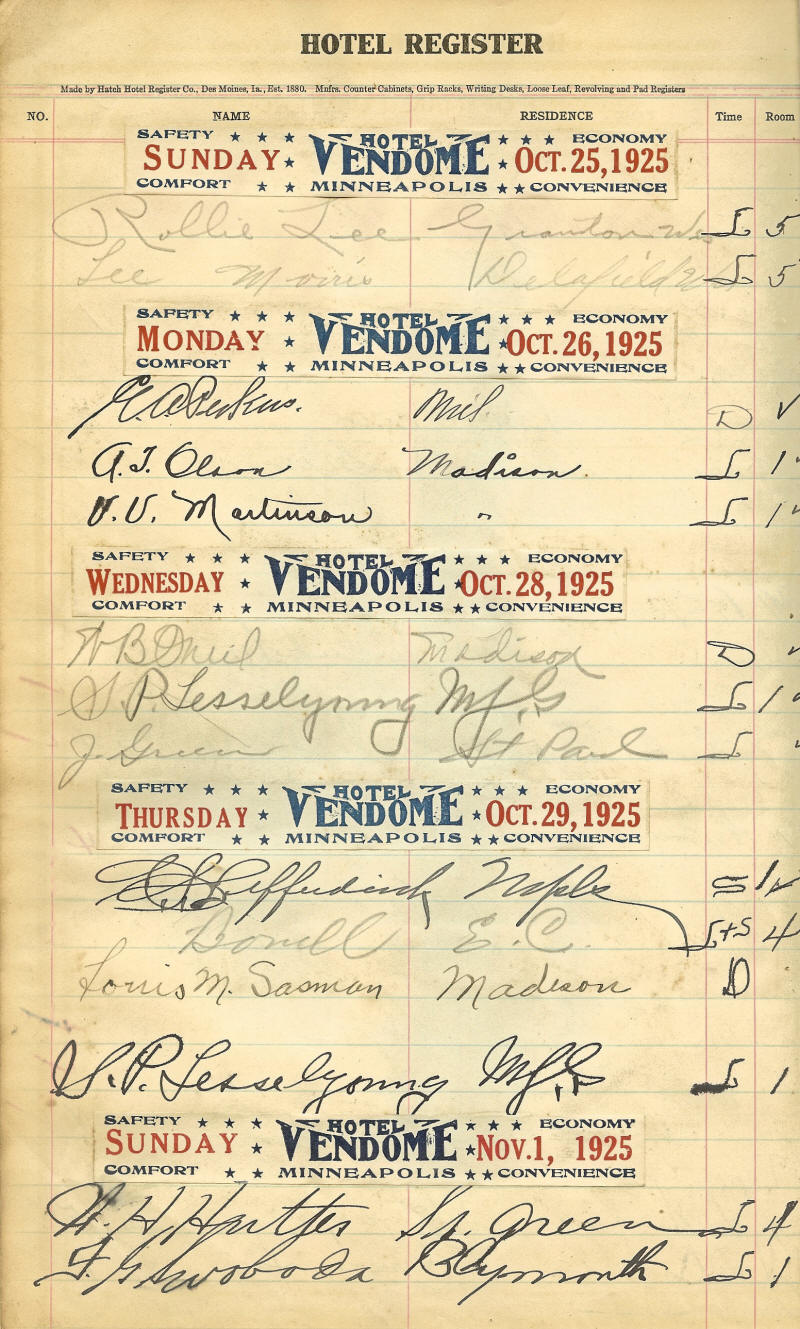 HOTEL REGISTER
Made by Hatch Hotel Register Co., Des Moines, Ia., Est. 1880. Mnfrs. Counter Cabinets, Grip Racks, Writing Desks, Loose Leaf, Revolving and Pad Registers
NO. NAME RESIDENCE Time Room
SAFETY HOTEL ECONOMY
SUNDAY VENDOME OCT. 25, 1925
COMFORT MINNEAPOLIS CONVENIENCE
Rollie Lee Granton Wis L 5
Lee Morris Delafield Wis L 5
SAFETY HOTEL ECONOMY
MONDAY VENDOME OCT. 26, 1925
COMFORT MINNEAPOLIS CONVENIENCE
Perkins. Mil D ✓
A. T. Olson Madison. L 1
V. V. Martinson " L 1
SAFETY HOTEL ECONOMY
WEDNESDAY VENDOME OCT. 28, 1925
COMFORT MINNEAPOLIS CONVENIENCE
W B O'Neil Madison D ✓
S. P. Lesselyoung L 1
J. Green St Paul L ✓
SAFETY HOTEL ECONOMY
THURSDAY VENDOME OCT. 29, 1925
COMFORT MINNEAPOLIS CONVENIENCE
Mpls S 1
Borell E. C. L+S 4
Louis M. Sasman Madison D
S. P. Lesselyoung L 1
SAFETY HOTEL ECONOMY
SUNDAY VENDOME NOV. 1, 1925
COMFORT MINNEAPOLIS CONVENIENCE
W. H. Hartjes Sp. Green L 4
F. G. Swoboda Plymouth L 1